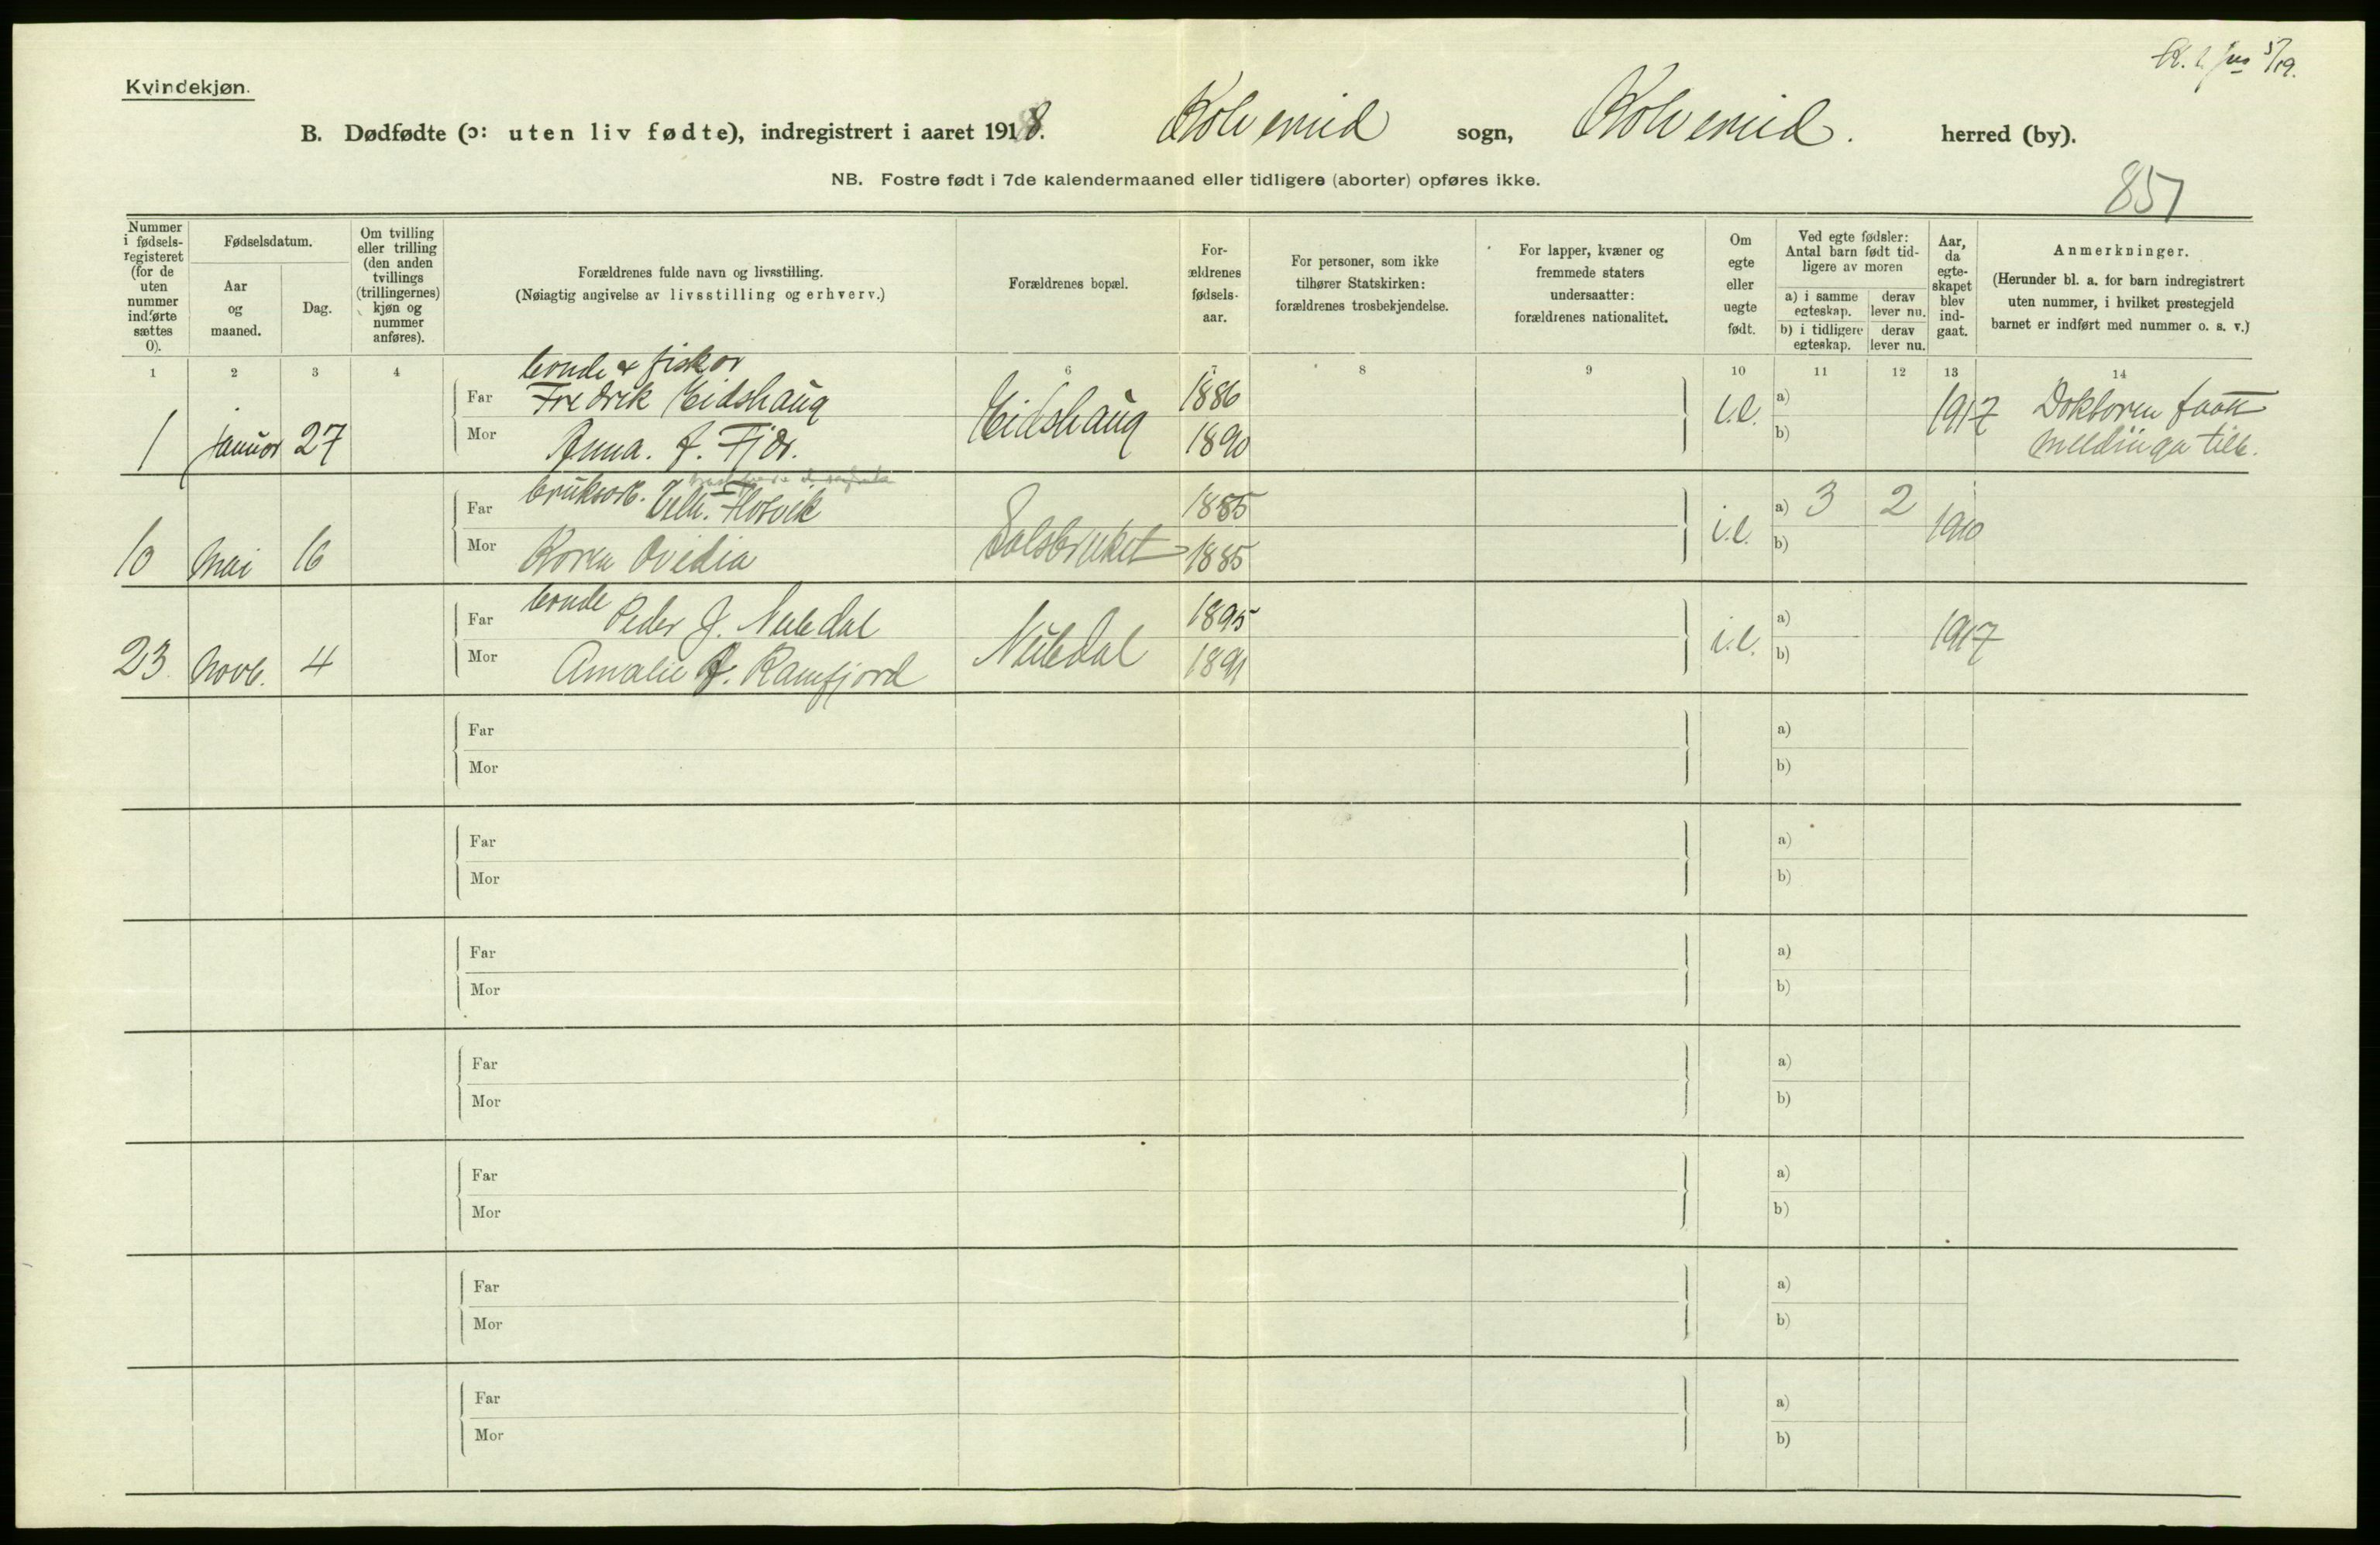 Kvindekjøn.
B. Dødfødte (ɔ: uten liv fødte), indregistrert i aaret 1918. Kolvereid sogn, Kolvereid. herred (by).
NB. Fostre født i 7de kalendermaaned eller tidligere (aborter) opføres ikke.
851
Nummer i fødsels-registeret (for de uten nummer indførte sættes 0).
Fødselsdatum.
Aar og maaned.
Dag.
Om tvilling eller trilling (den anden tvillings (trillingernes) kjøn og nummer anføres).
Forældrenes fulde navn og livsstilling.
(Nøiagtig angivelse av livsstilling og erhverv.)
Forældrenes bopæl.
For-ældrenes fødsels-aar.
For personer, som ikke tilhører Statskirken: forældrenes trosbekjendelse.
For lapper, kvæner og fremmede staters undersaatter: forældrenes nationalitet.
Om egte eller uegte født.
Ved egte fødsler: Antal barn født tid-ligere av moren
a) i samme egteskap. derav lever nu.
b) i tidligere egteskap. derav lever nu.
Aar, da egte-skapet blev ind-gaat.
Anmerkninger.
(Herunder bl. a. for barn indregistrert uten nummer, i hvilket prestegjeld barnet er indført med nummer o. s. v.)
1 2 3 4 6 7 8 9 10 11 12 13 14
bonde & fisker
Far Fredrik Eidshaug 1886 a)
1 januar 27 Eidshaug i.e. 1917 Doktoren faatt
Mor Anna. J. Fjær. 1890 b) meldinga till.
bruksarb.
Far Vilh. Flotvik 1885 a) 3 2
10 Mai 16 Salsbruket i.e. 1910
Mor Karen Ovedia 1885 b)
bonde
Far Peder J. Nubdal 1895 a)
23. Novb. 4 Nubdal i.e. 1917
Mor Amalie J. Ramfjord 1891 b)
Far a)
Mor b)
Far a)
Mor b)
Far a)
Mor b)
Far a)
Mor b)
Far a)
Mor b)
Far a)
Mor b)
Far a)
Mor b)